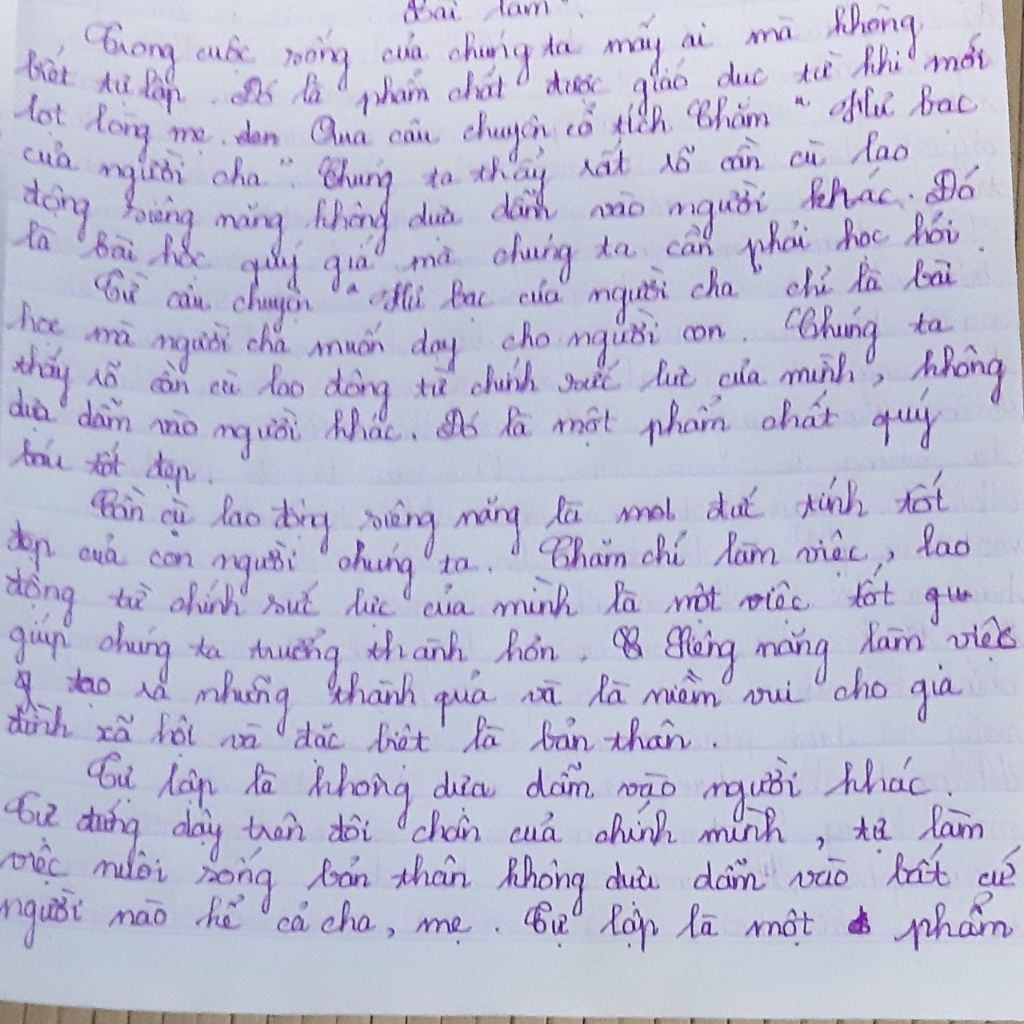 Bài làm
Trong cuộc sống của chúng ta mấy ai mà không
biết tự lập. Đó là phẩm chất được giáo dục từ khi mới
lọt lòng mẹ. đen Qua câu chuyện cổ tích Chăm " Hũ bạc
của người cha". Chúng ta thấy rất rõ cần cù lao
động siêng năng không dựa dẫm vào người khác. Đó
là bài học quý giá mà chúng ta cần phải học hỏi.
Từ câu chuyện " Hũ bạc của người cha" chỉ là bài
học mà người cha muốn dạy cho người con. Chúng ta
thấy rõ cần cù lao động từ chính sức lực của mình, không
dựa dẫm vào người khác. Đó là một phẩm chất quý
báu tốt đẹp.
Cần cù lao động siêng năng là mot đức tính tốt
đẹp của con người chúng ta. Chăm chỉ làm việc, lao
động từ chính sức lực của mình là một việc tốt
giúp chúng ta trưởng thành hơn. Siêng năng làm việc
tạo ra những thành quả và là niềm vui cho gia
đình xã hội và đặc biệt là bản thân.
Tự lập là không dựa dẫm vào người khác
Tự đứng dậy trên đôi chân của chính mình, tự làm
việc nuôi sống bản thân không dựa dẫm vào bất cứ
người nào kể cả cha, mẹ. Tự lập là một phẩm